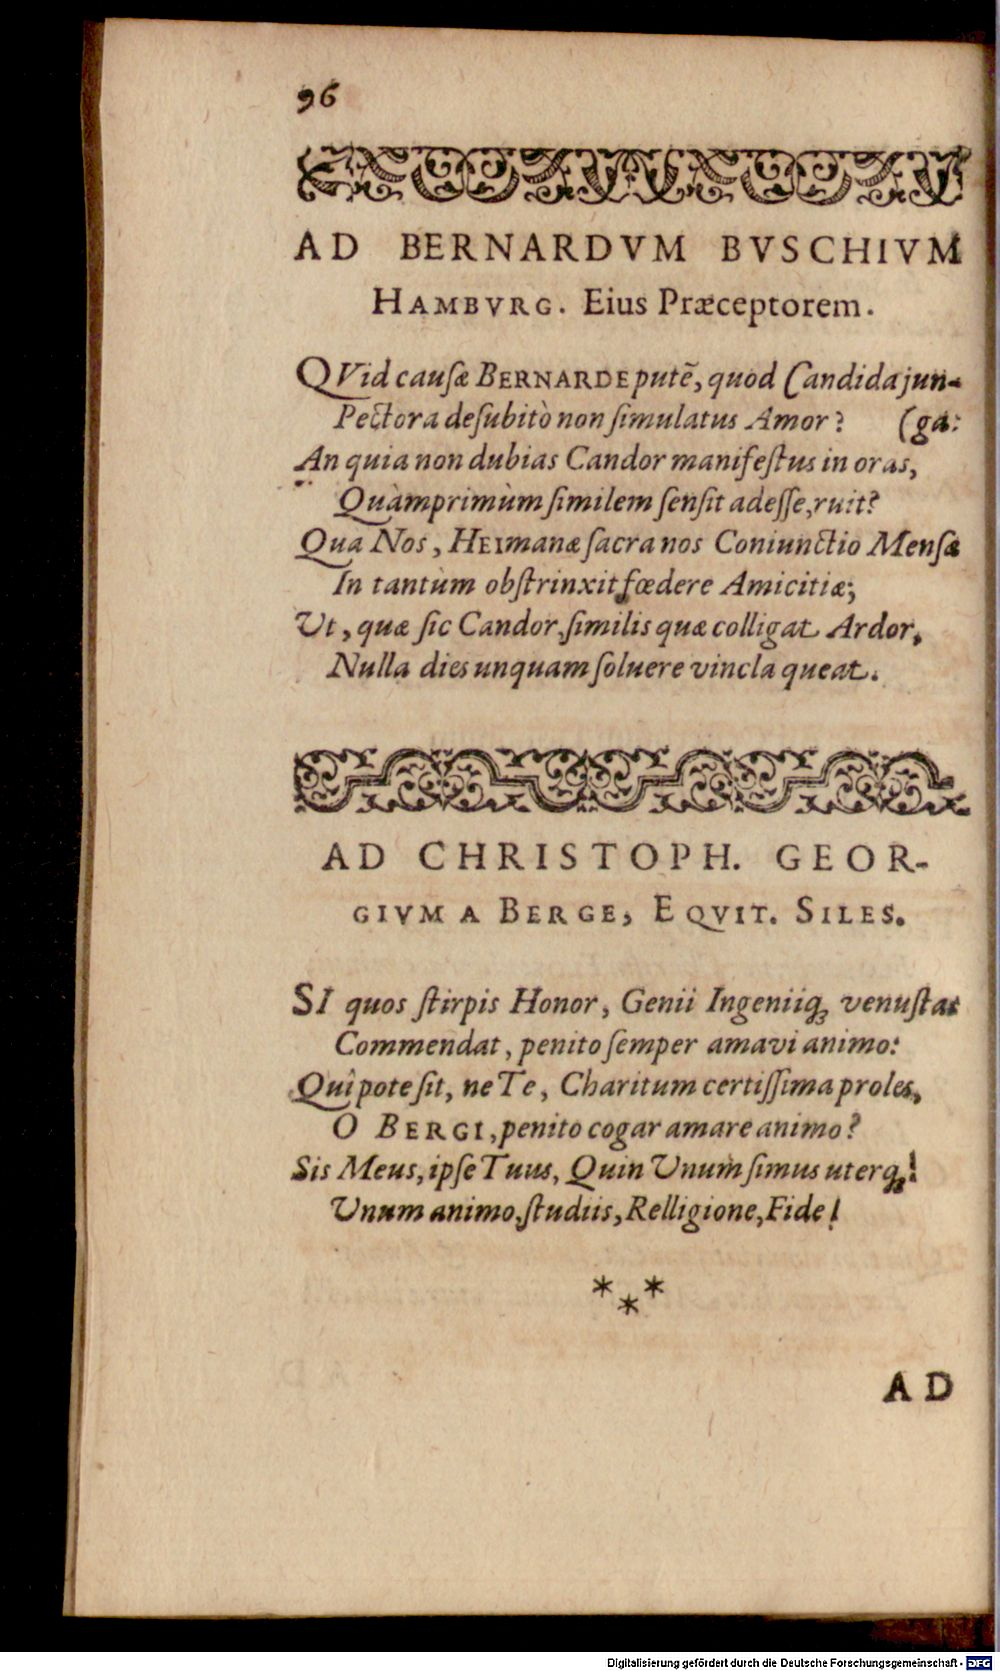 96
AD BERNARDVM BVSCHIVM
HAMBVRG. Eius Præceptorem.
QVid causæ BERNARDE putē, quod Candida jun-
Pectora desubitò non simulatus Amor? (ga:
An quia non dubias Candor manifestus in oras,
Quàmprimùm similem sensit adesse, ruit?
Qua Nos, HEImanæ sacra nos Coniunctio Mensæ
In tantùm obstrinxit fœdere Amicitiæ;
Ut, quæ sic Candor, similis quæ colligat Ardor,
Nulla dies unquam soluere vincla queat.
AD CHRISTOPH. GEOR-
GIVM A BERGE, EQVIT. SILES.
SI quos stirpis Honor, Genii Ingeniiq; venustas
Commendat, penito semper amavi animo:
Quî pote sit, ne Te, Charitum certissima proles,
O BERGI, penito cogar amare animo?
Sis Meus, ipse Tuus, Quin Unum simus uterq;!
Unum animo, studiis, Relligione, Fide!
* * *
AD
Digitalisierung gefördert durch die Deutsche Forschungsgemeinschaft - DFG